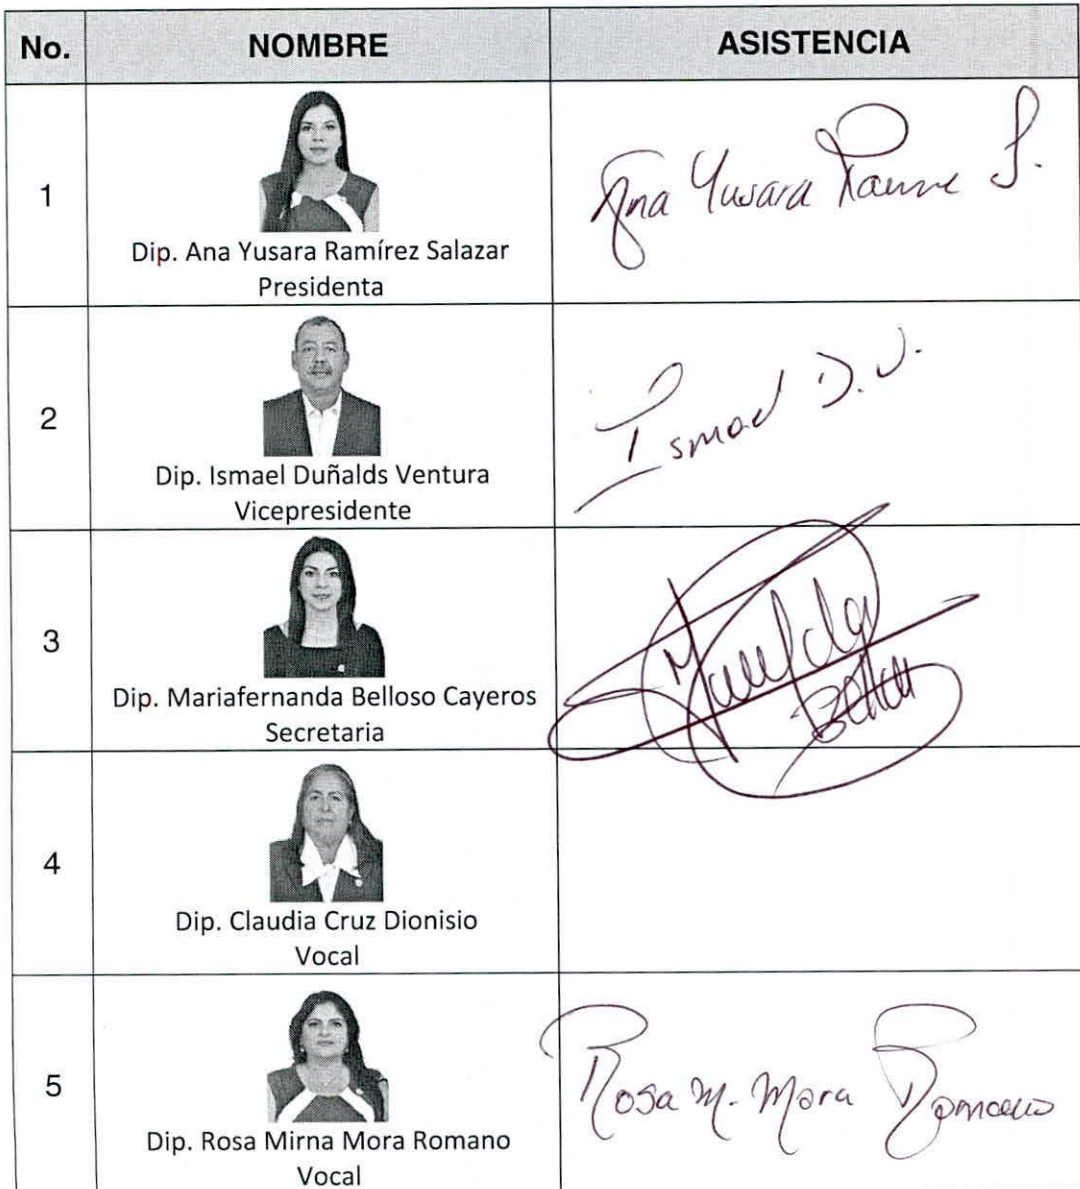 No. NOMBRE ASISTENCIA
1
Dip. Ana Yusara Ramírez Salazar
Presidenta
Ana Yusara Ramírez S.
2
Dip. Ismael Duñalds Ventura
Vicepresidente
Ismael D.V.
3
Dip. Mariafernanda Belloso Cayeros
Secretaria
4
Dip. Claudia Cruz Dionisio
Vocal
5
Dip. Rosa Mirna Mora Romano
Vocal
Rosa M. Mora Romano